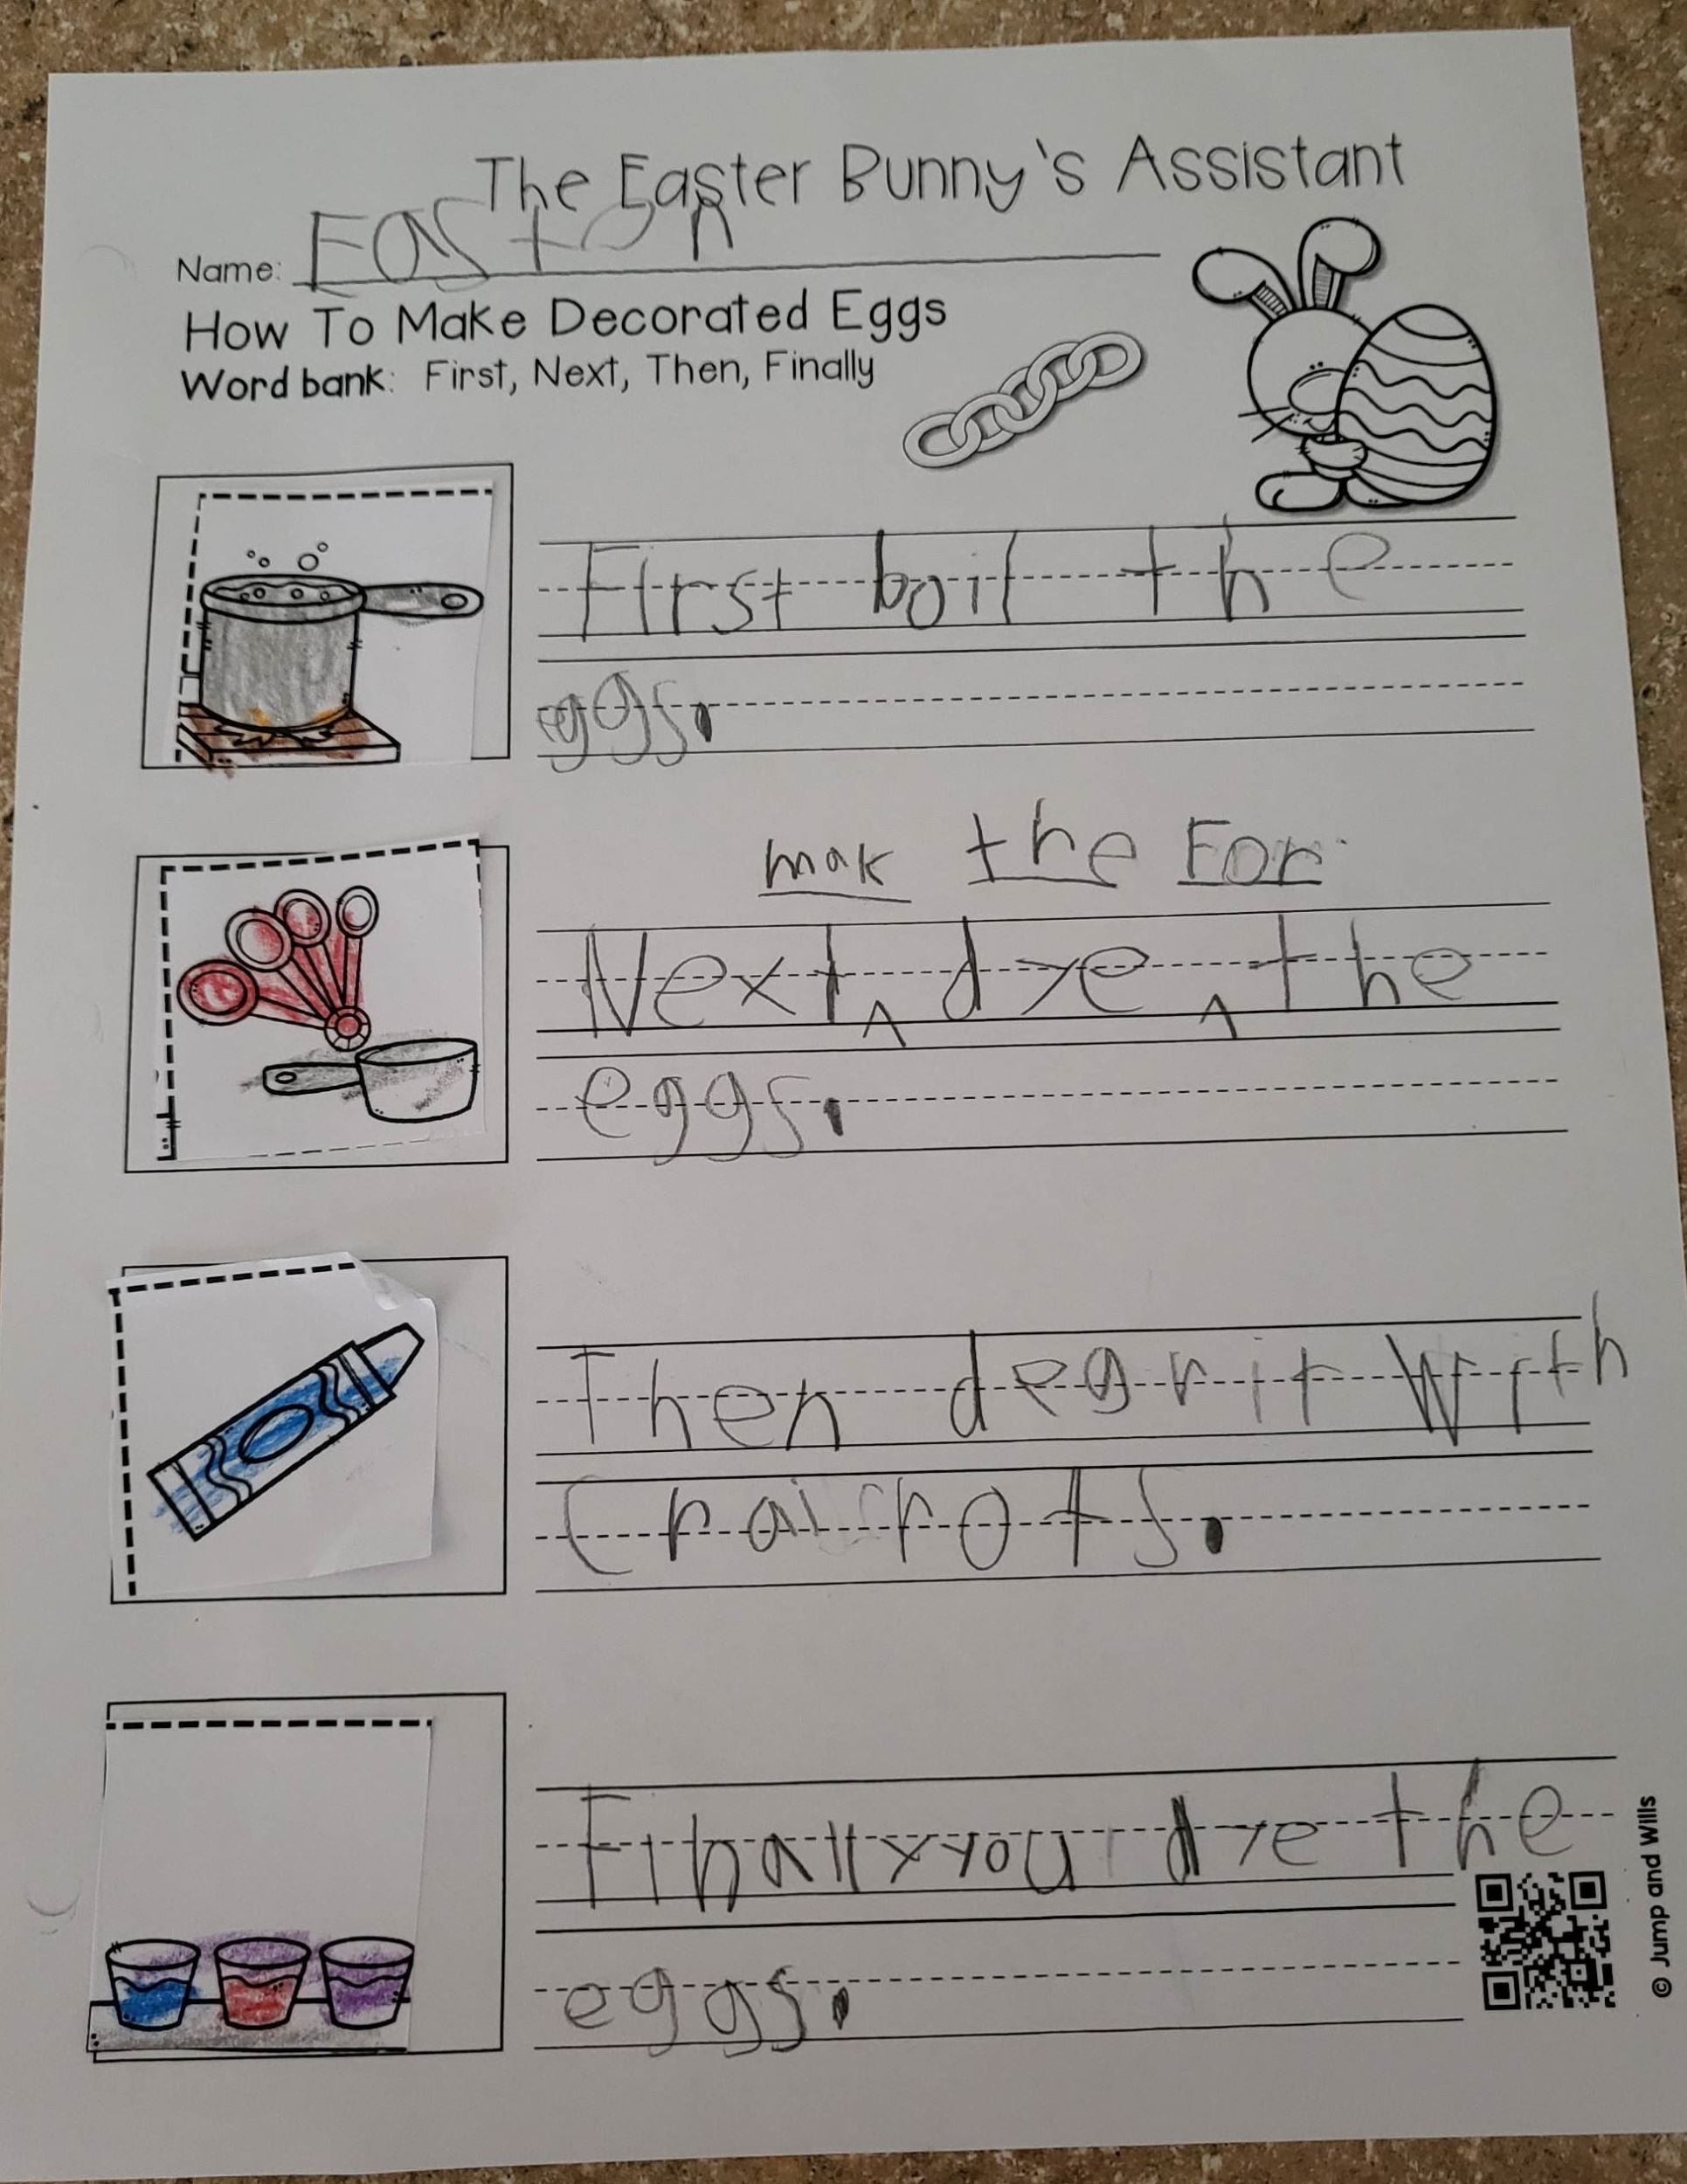 The Easter Bunny's Assistant
Name: Easton
How To Make Decorated Eggs
Word bank: First, Next, Then, Finally
First boil the
eggs.
mak the For
Next, ^ dye ^ the
eggs.
Then degrit With
Crairots.
Finally you dye the
eggs.
© Jump and Wills